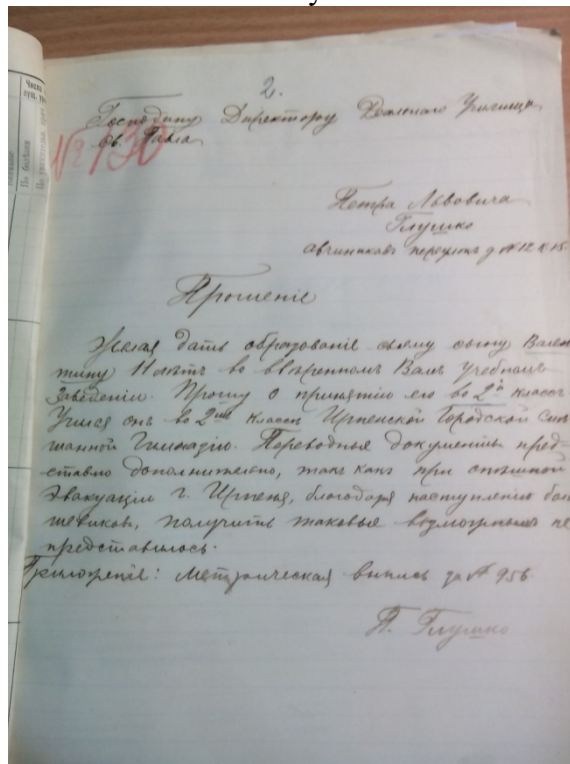 2.
Господину Директору Реального Училища
св. Павла
№ 130
Петра Львовича
Глушко
Авчинников переулок д № 12 к 15.
Прошеніе
Желая дать образованіе своему сыну Вален
тину 11 лѣтъ во ввѣренномъ Вамъ учебномъ
Заведеніи. Прошу о принятіи его во 2й классъ
Учился онъ во 2мъ классѣ Ирпенской Городской Смѣ
шанной Гимназіи. Переводные документы пред-
ставлю дополнительно, такъ какъ при спѣшной
Эвакуаціи г. Ирпеня, благодаря наступленію бол
шевиковъ, получить таковые возможнымъ не
представилось.
Приложеніе: Метрическая выпись за № 956
П. Глушко
Число
По болѣзни